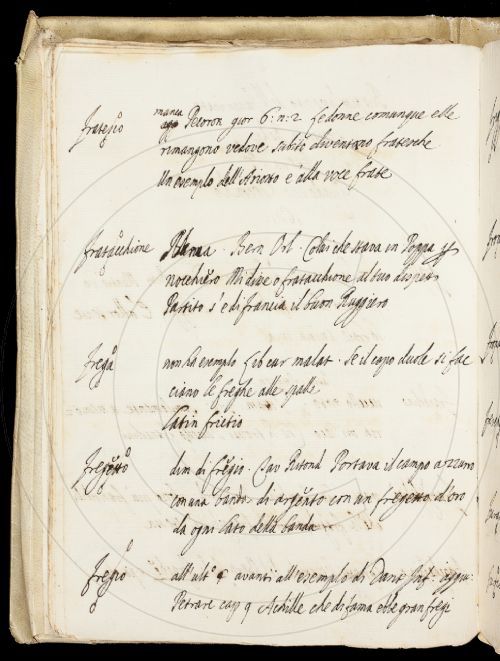 manca
Pecoron gior 6: n: 2 le donne comunque elle
rimangono vedove subito diventano fratesche
Un esemplo dell'Ariosto è alla voce frate
fratacchione Bern Orl. Colui che stava in Poppa p
nocchiero Mi dive o fratacchione al tuo dispetto
Partito s'è di francia il buon Ruggiero
frega non ha esemplo lib cur malat. Se il capo duole si fac
ciano le freghe alle spalle
latin frictio
fregetto dim di fregio. Cav Portava il campo azzurro
con una banda di argento con un fregetto d'oro
da ogni lato della banda
fregio all' ult° avanti all'esemplo di Dant Inf: aggiu:
Petrarc cap 9 Achille che di fama ebbe gran fregi